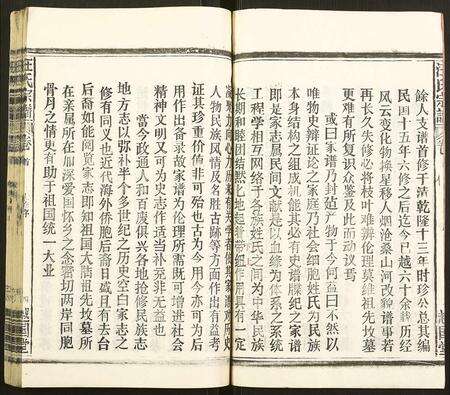 餘人支谱首修于清乾隆十三年时珍公总其编
民国十五年六修之后迄今已越六十余载历经
风云变化物换星移人烟沧桑山河改貌谱事若
再长久失修必将枝叶难辨伦理莫维祖先坟墓
更难有所复识众鉴及此而动议焉
或曰家谱乃封产物于今何益曰不然以
唯物史辩证论之家庭乃社会细胞姓氏为民族
本身结构之组成机能有史必以血缘为体系之系统
即是家志属民间文献是以具史谱纪之家谱
工程学相互网络于各族姓氏之间为中华民族
长期和睦团结
人物民族风情及名胜古迹等方面作出有益考
证其珍重价值非可殆也古为今用今亦可为后
用作出备录故家谱为伦理所需既可增进社会
精神文明又可为史志作适当补充非无益也
当今政通人和百废俱兴各地抢修民族志
地方志以弥补半个多世纪之历史空白家志之
修有同义也近代海外侨胞后裔日盛且有去台
后裔如能阅览家志即知祖国大陆祖先坟墓所
在亲属所在加深爱国怀乡之念密切两岸同胞
骨肉之情更有助于祖国统一大业
汪氏宗谱